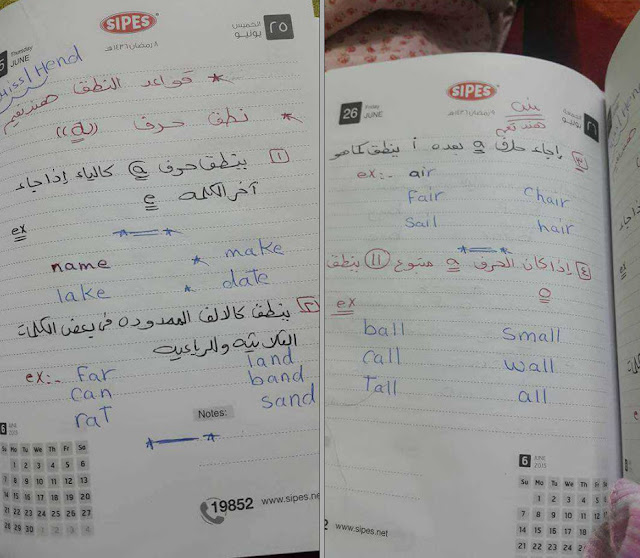 SIPES
الخميس
يونيو
٢٥
٨ رمضان ١٤٣٦هـ
5
Thursday
JUNE
Miss/Hend
* قواعد النطق
هند نعيم
* نطق حرف ((a))
١ ينطق حرف a كالياء إذا جاء
آخر الكلمة e
ex
name * make
lake * date
٢ ينطق كالالف الممدوده فى بعض الكلمات
الثلاثيه والرباعيه
ex:- Far land
can band
raT sand
Notes:
6
2015
Su Mo Tu We Th Fr Sa
1 2 3 4 5 6
7 8 9 10 11 12 13
14 15 16 17 18 19 20
21 22 23 24 25 26 27
28 29 30 1 2 3 4
19852 www.sipes.net
SIPES
26
Friday
JUNE
٩ رمضان ١٤٣٦هـ
٢٦
هند نعيم
٣ إذا جاء حرف a بعده i ينطق كما هو
ex:- air
Fair Chair
Sail hair
٤ إذا كان الحرف a متبوع ll ينطق
o
ex
ball small
call wall
Tall all
6
JUNE
2015
Su Mo Tu We Th Fr
1 2 3 4 5
7 8 9 10 11 12
14 15 16 17 18
21 22 23 24 25
www.sipes.net